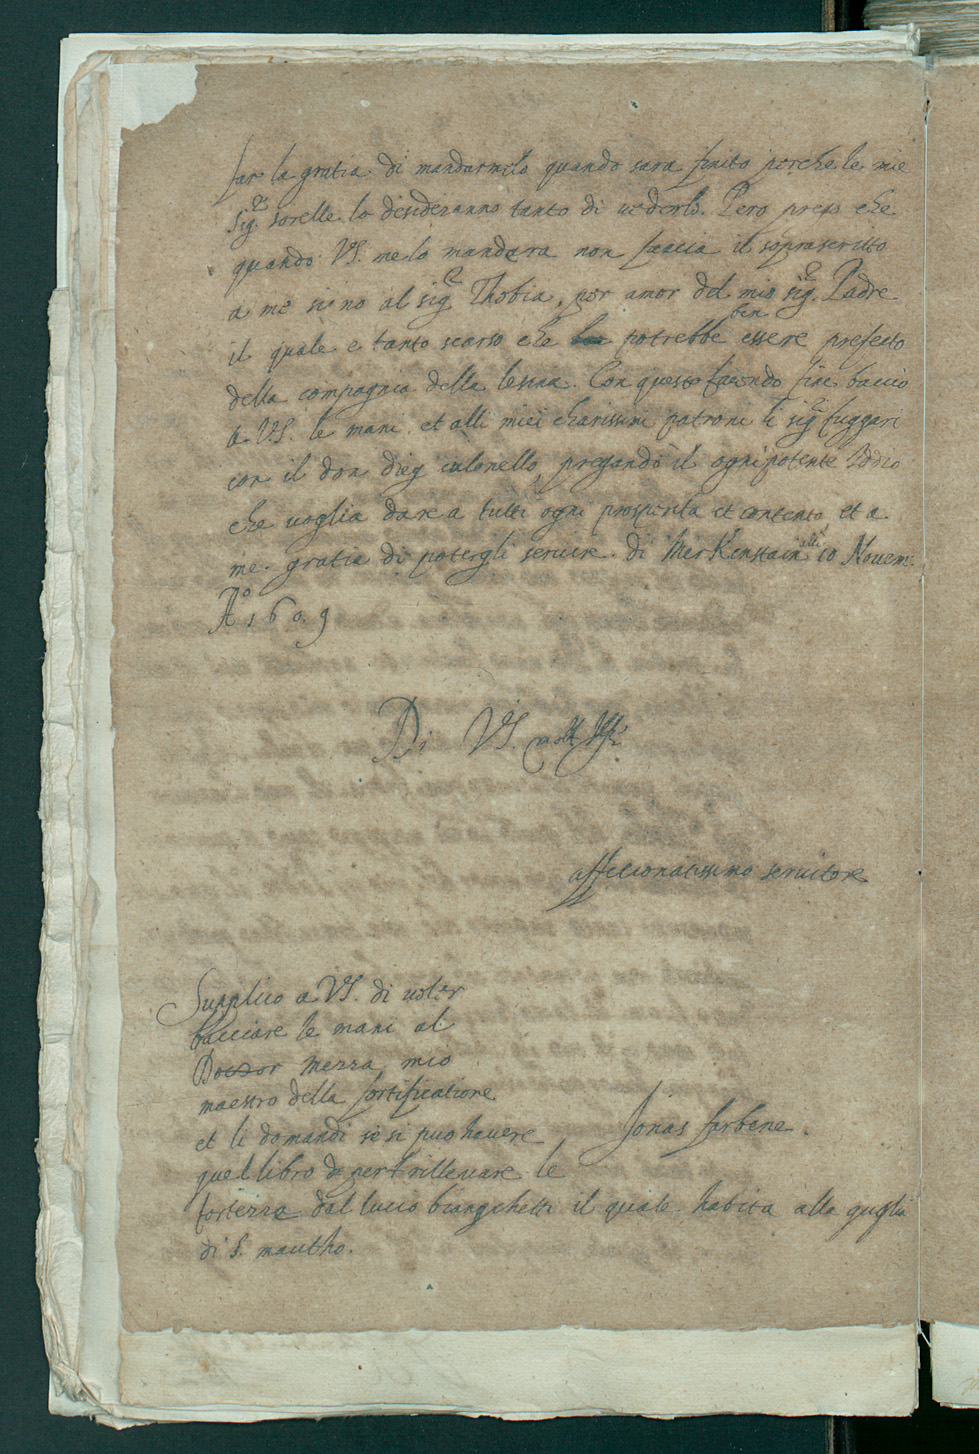 far la gratia di mandarmilo quando sara finito perche le mie
sig.re sorelle lo desideranno tanto di vederlo. Pero prego che
quando VS. me lo mandara non faccia il soprascritto
a me si no al sig.r Thobia, per amor del mio sig.r Padre
il quale e tanto scarso che potrebbe ben essere prefecto
della compagnia della lesina. Con questo facendo fine baccio
a VS. le mani et alli miei charissimi patroni li sig.ri fuggari
con il don dieg culonello, pregando il ognipotente Iddio
che voglia dare a tutti ogni prosperita et contento, et a
me gratia di potergli servire. di Merkenstain alli 10 Novem:
A.o 1609
Di VS. molt Ill.re
affecionatissimo servitore
Supplico a VS. di voler
bacciare le mani al
Doctor mezza, mio
maestro della fortificatione
et li domandi se si puo havere
Jonas farbene.
quel libro per rillevare le
fortezze dal lucio biangchetti il quale habita alla guglia
di S. mautho.